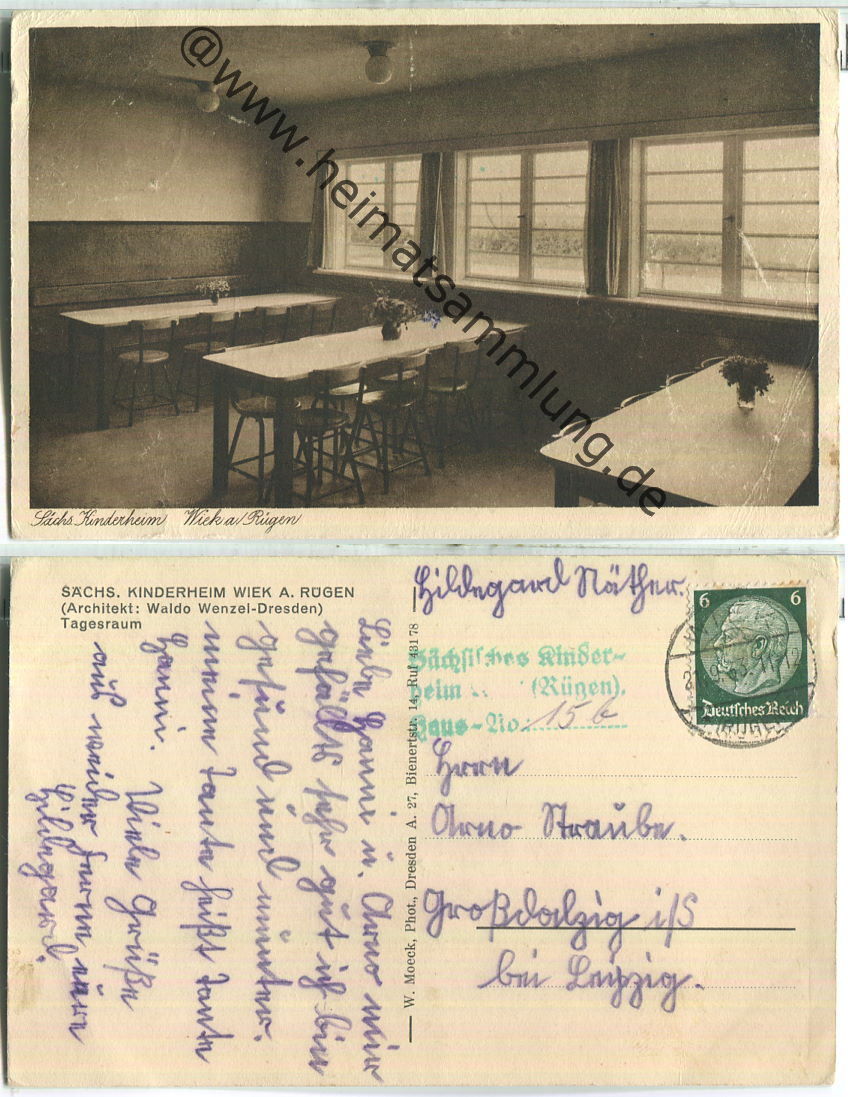 @www.heimatsammlung.de
Sächs. Kinderheim Wiek a/Rügen
SÄCHS. KINDERHEIM WIEK A. RÜGEN
(Architekt: Waldo Wenzel-Dresden)
Tagesraum
Liebe Hanni u. Arno mir
gefällts sehr gut ich bin
gesund und munter.
meine Tante heißt Tante
Hanni. Viele Grüße
aus weiter Ferne eure
Hildegard.
W. Moeck, Phot., Dresden A. 27, Bienertstr. 14, Ruf 43178
Hildegard Näther.
6 6
Deutsches Reich
Sächsisches Kinder-
heim (Rügen).
Haus-No. 15 b
Herrn
Arno Straube.
Großdalzig i/S
bei Leipzig.